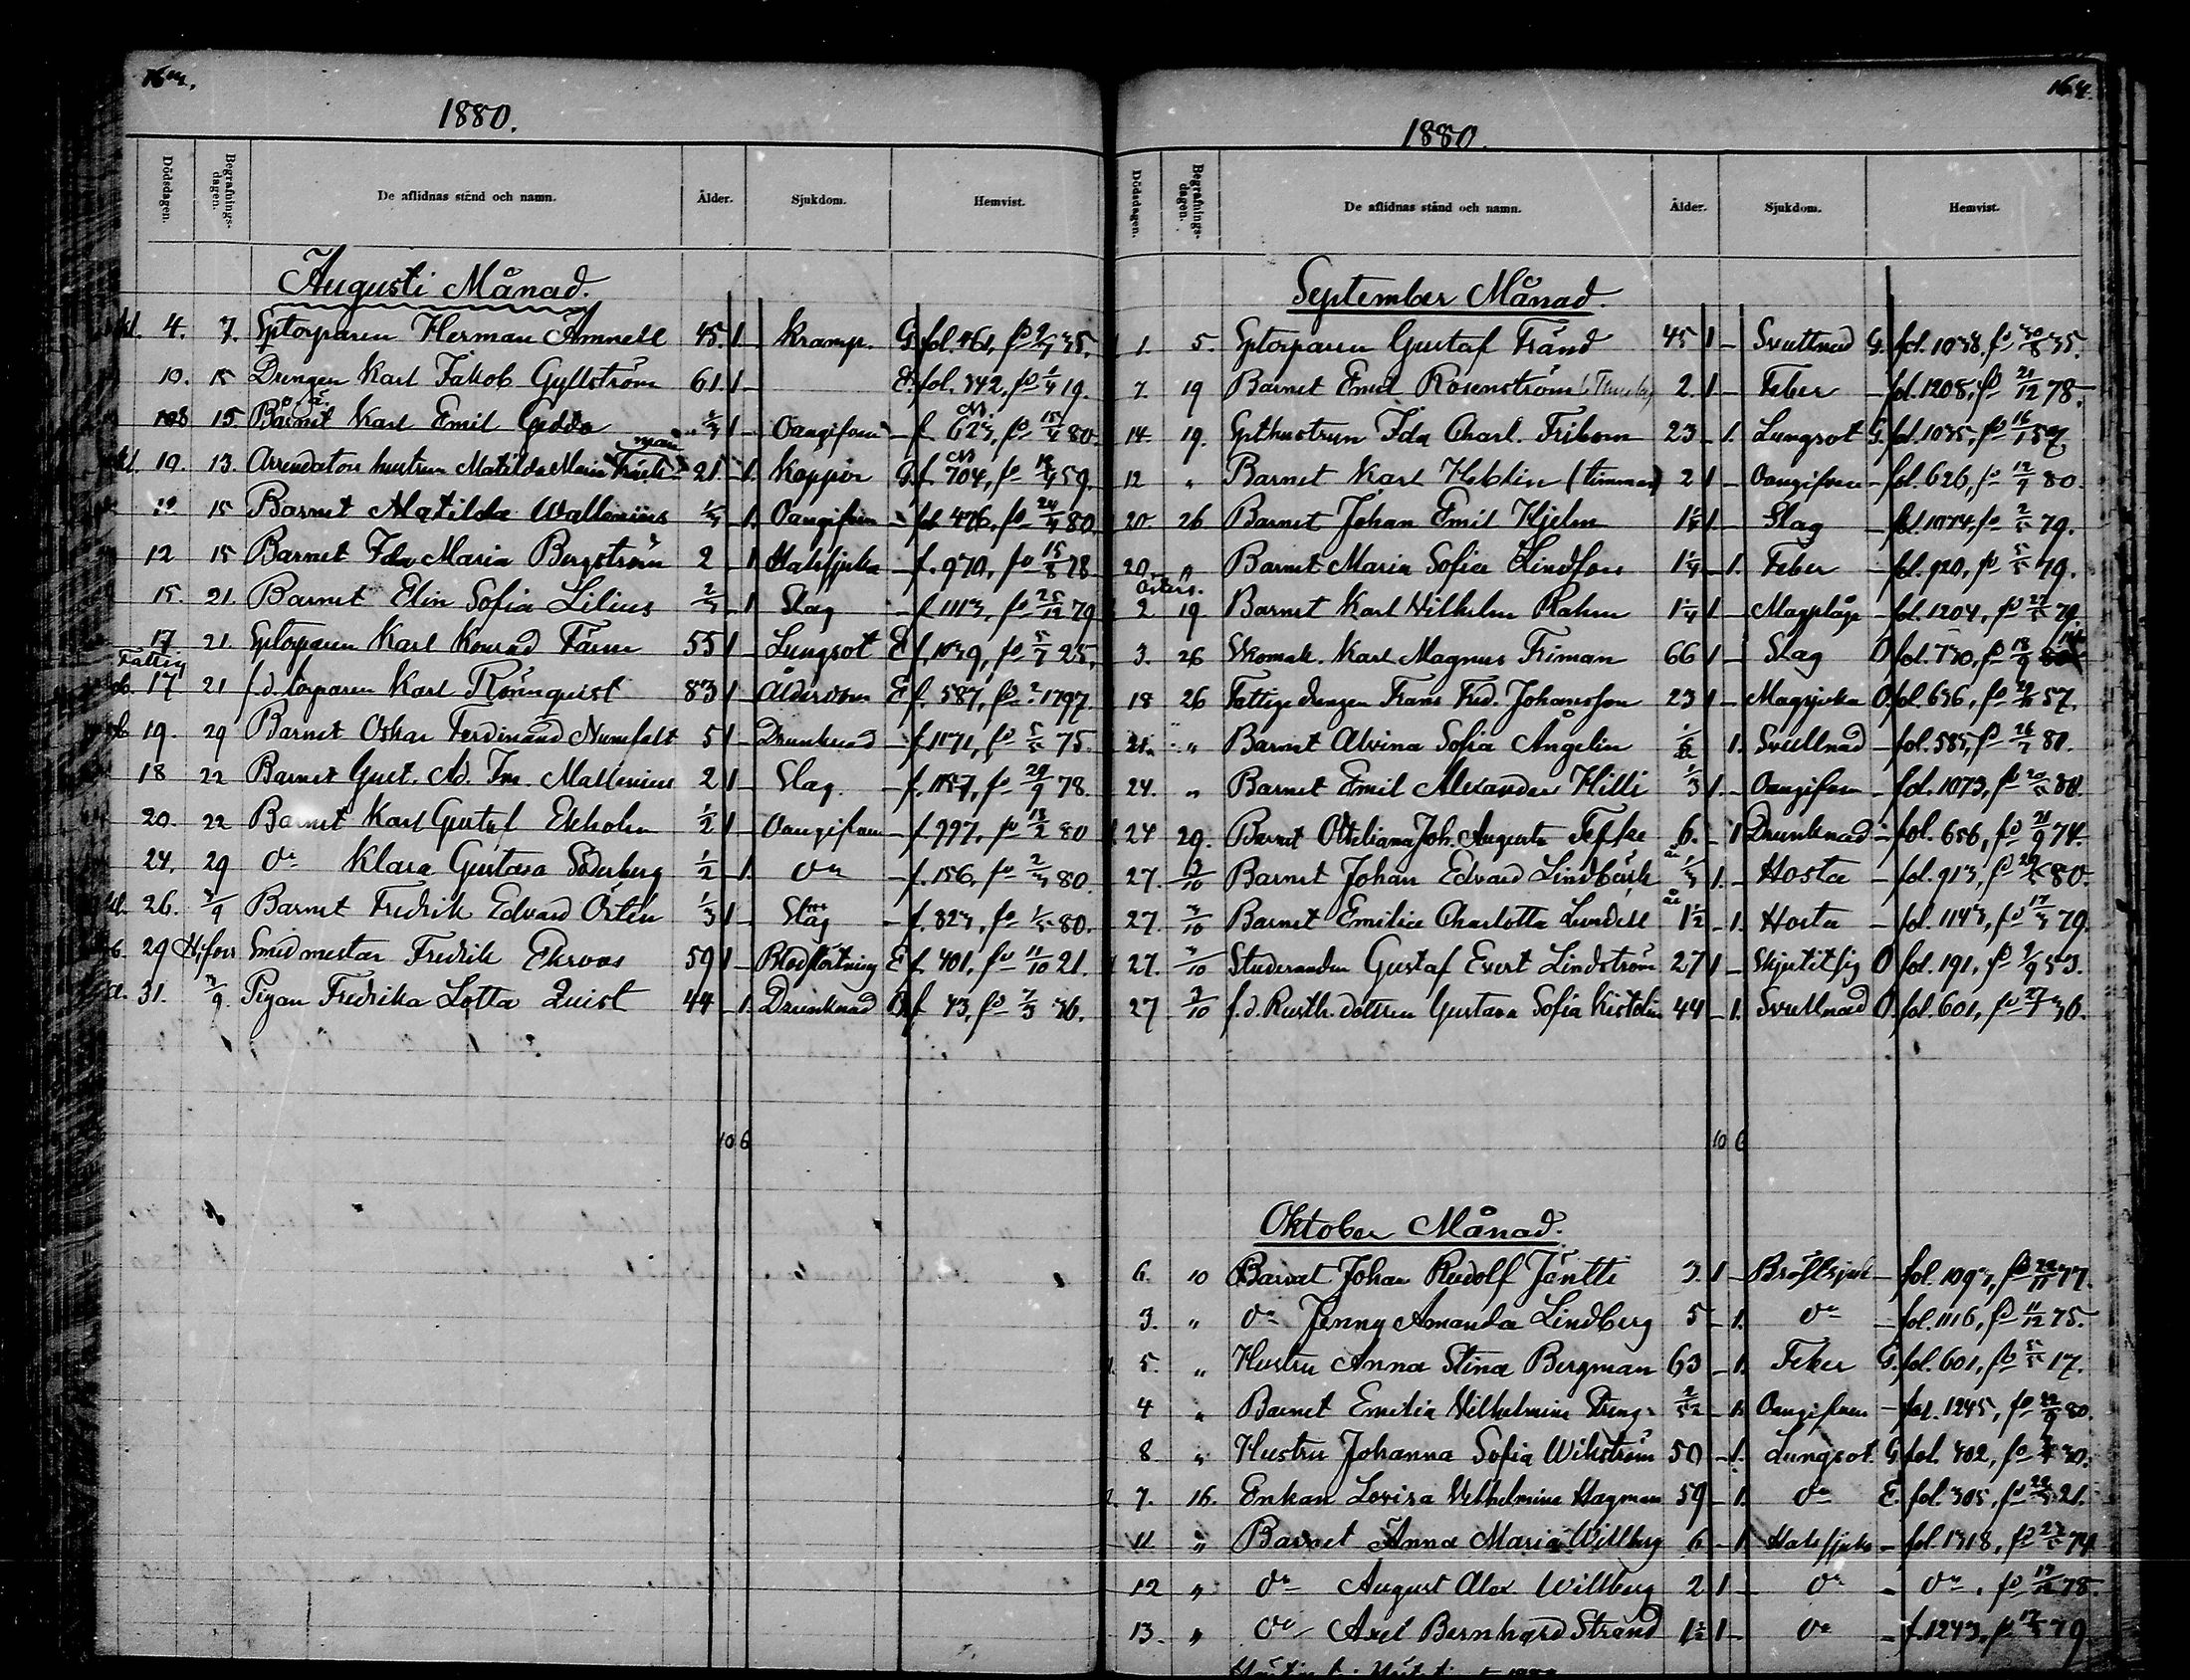 1880.
Dödsdagen. Begrafnings-dagen. De aflidnas stånd och namn. Ålder. Sjukdom. Hemvist.
Augusti Månad.
4. 7. Sptorparen Herman Amnell 45. 1 Kramp. G. fol. 461, fö 2/7 35.
10. 15 Drengen Karl Jakob Gyllström 61. 1 E. fol. 342, fö 1/4 19.
15 Barnet Karl Emil Gedda 1/3 1 Oangifven f. 623, fö 15/4 80.
10. 13. Arrendators hustrun Matilda Maria 21. 1. Koppor G. f. 704, fö 59.
12 15 Barnet Matilda Wallenius 1/3 1. Oangifven fol 476, fö 24/4 80.
12 15 Barnet Ida Maria Bergström 2 1 Halssjuka f. 970, fö 15/8 78
15. 21. Barnet Elin Sofia Lilius 2/3 1 Slag f. 1113, fö 25/12 79
17 21. Sptorparen Karl Konrad Färm 55 1 Lungsot E f. 1039, fö 5/7 25.
Fattig
17 21 f.d. torparen Karl Rönnqvist 83 1 Ålderdom E f. 587, fö 1797.
19. 29 Barnet Oskar Ferdinand Numfelt 5 1 Drunknad f. 1171, fö 5/5 75.
18 22 Barnet Gust. Ad. Im. Mallenius 2 1 Slag. f. 1157, fö 29/9 78.
20. 22 Barnet Karl Gustaf Ekholm 1/2 1 Oangifven f. 997, fö 18/2 80
24. 29 Dn Klara Gustava Söderberg 1/2 1. Dn f. 156, fö 2/3 80.
26. 3/9 Barnet Fredrik Edvard Östen 1/3 1 Slag f. 823, fö 1/5 80.
29 H:fors Smidmestar Fredrik Ekroos 59 1 Blodstörtning E f. 401, fö 11/10 21.
31. 3/9. Pigan Fredrika Lotta Quist 44 1. Drunknad O f. 43, fö 7/3 36.
10 6
164.
1880.
Dödsdagen. Begrafnings-dagen. De aflidnas stånd och namn. Ålder. Sjukdom. Hemvist.
September Månad.
1. 5. Sptorparen Gustaf Tränd 45 1 Svullnad G. fol. 1038. fö 30/8 35.
7. 19 Barnet Emil Rosenström 2. 1 Feber fol. 1208, fö 21/12 78.
14. 19. Spthustrun Ida Charl. Friborn 23 1. Lungsot G. fol. 1035, fö 16/1 57
12 " Barnet Karl Heblin (timman) 2 1 Oangifven fol. 626, fö 12/9 80.
20. 26 Barnet Johan Emil Hjelm 1 1/4 1 Slag fol. 1074, fö 2/5 79.
20. " Barnet Maria Sofia Lindfors 1 1/4 1. Feber fol. 920, fö 5/5 79.
2 19 Barnet Karl Vilhelm Rahm 1 1/4 1 Magplåga fol. 1204, fö 79.
3. 26 Skomak. Karl Magnus Friman 66 1 Slag O fol. 730, fö 18/9
18 26 Fattige drengen Frans Fred. Johansson 23 1 Magsjuka O. fol. 636, fö 57.
21. " Barnet Alvina Sofia Ångelin 1. Svullnad fol. 585, fö 26/7 80.
24. " Barnet Emil Alexander Hilli 1/3 1. Oangifven fol. 1073, fö 20/5 80.
24 29. Barnet Otteliana Joh. Augusta Teffke 6. 1 Drunknad fol. 656, fö 21/9 74.
27. 3/10 Barnet Johan Edvard Lindbäck 1/3 1. Hosta fol. 913, fö 80.
27. 3/10 Barnet Emilia Charlotta Lundell 1 1/2 1. Hosta fol. 1143, fö 17/3 79.
27. 3/10 Studeranden Gustaf Evert Lindström 27 1 Skjutit sig O fol. 191, fö 2/9 53.
27 3/10 f.d. Rusth. dottren Gustava Sofia Kistolin 44 1. Svullnad O. fol. 601, fö 27/7 36.
10 6
Oktober Månad.
6. 10 Barnet Johan Rudolf Jäntti 3. 1 Bröstsjuk fol. 1093, fö 22/11 77.
3. " Dn Jenny Amanda Lindberg 5 1. Dn fol. 1116, fö 11/12 75.
5. " Hustru Anna Stina Bergman 63 1. Feber G. fol. 601, fö 5/5 17.
4 " Barnet Emelia Vilhelmina Streng 2/52 1. Oangifven fol. 1245, fö 22/9 80.
8. " Hustru Johanna Sofia Wikström 50 1. Lungsot. G. fol. 402, fö 30.
7. 16. Enkan Lovisa Vilhelmina Hagman 59 1. Dn E. fol. 305, fö 21.
11. " Barnet Anna Maria Willberg 6 1 Halssjuka fol. 1318, fö 74
12 " Dn August Alex Willberg 2 1 Dn Dn. fö 78.
13. " Dn Axel Bernhard Strand 1 1/2 1 Dn f. 1243, fö 79